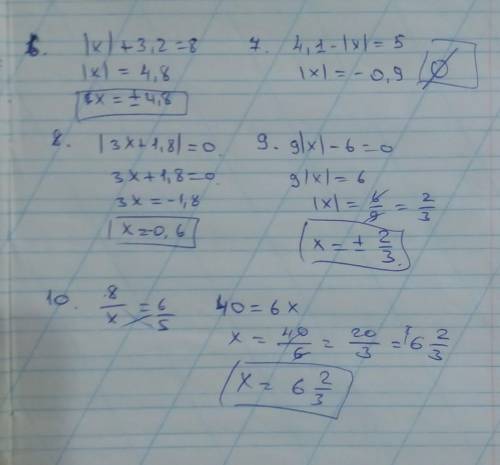 6. |x| + 3,2 = 8
|x| = 4,8
x = ± 4,8
7. 4,1 - |x| = 5
|x| = - 0,9 ∅
8. |3x+1,8| = 0
3x+1,8 = 0
3x = -1,8
x = 0,6
9. 9|x| - 6 = 0
9|x| = 6
|x| = 6/9 = 2/3
x = ± 2/3
10. 8/x = 6/5
40 = 6x
x = 40/6 = 20/3 = 6 2/3
x = 6 2/3